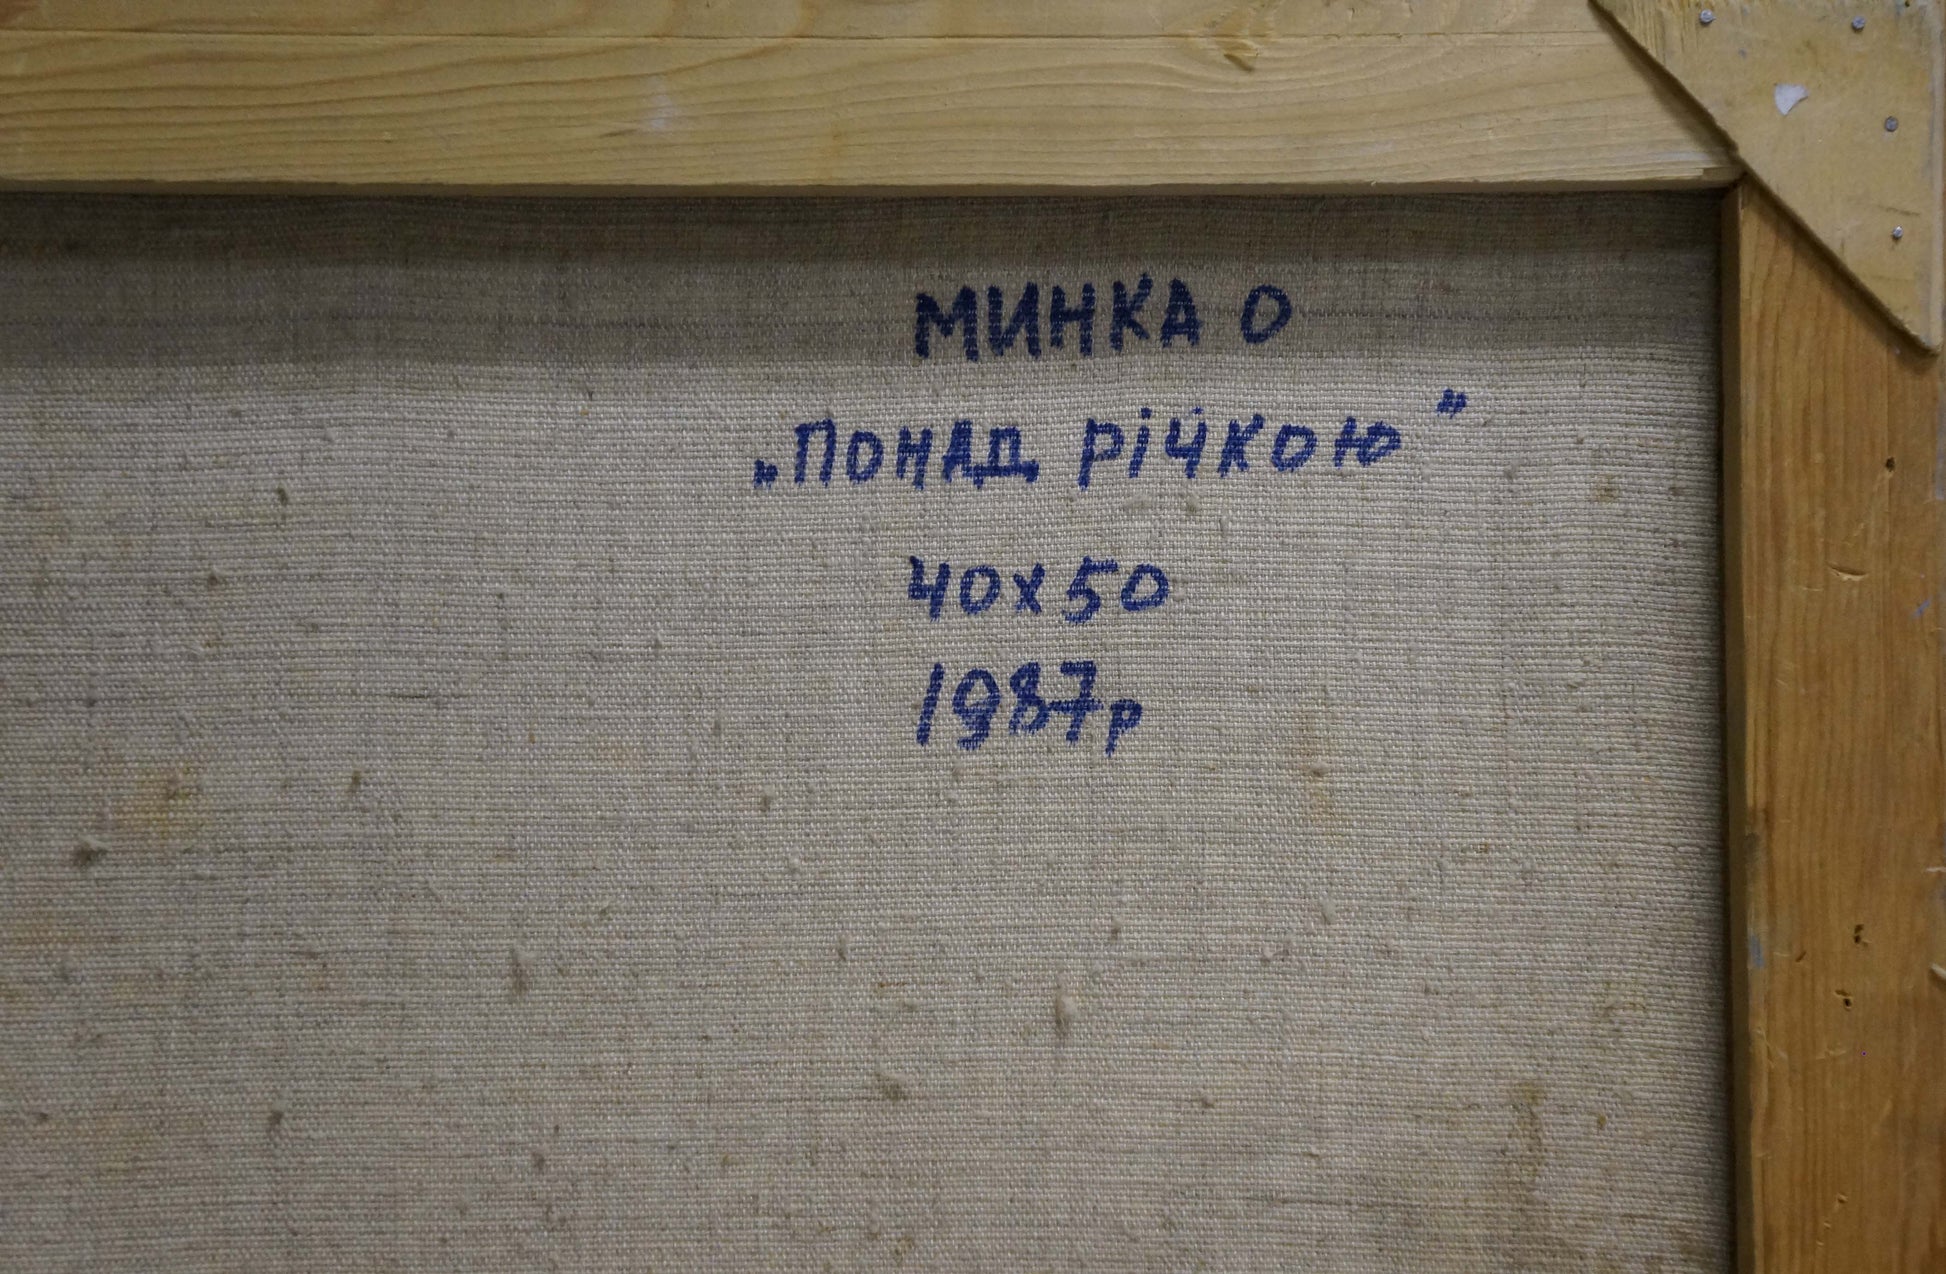 МИНКА О
„ПОНАД РІЧКОЮ"
40х50
1987р